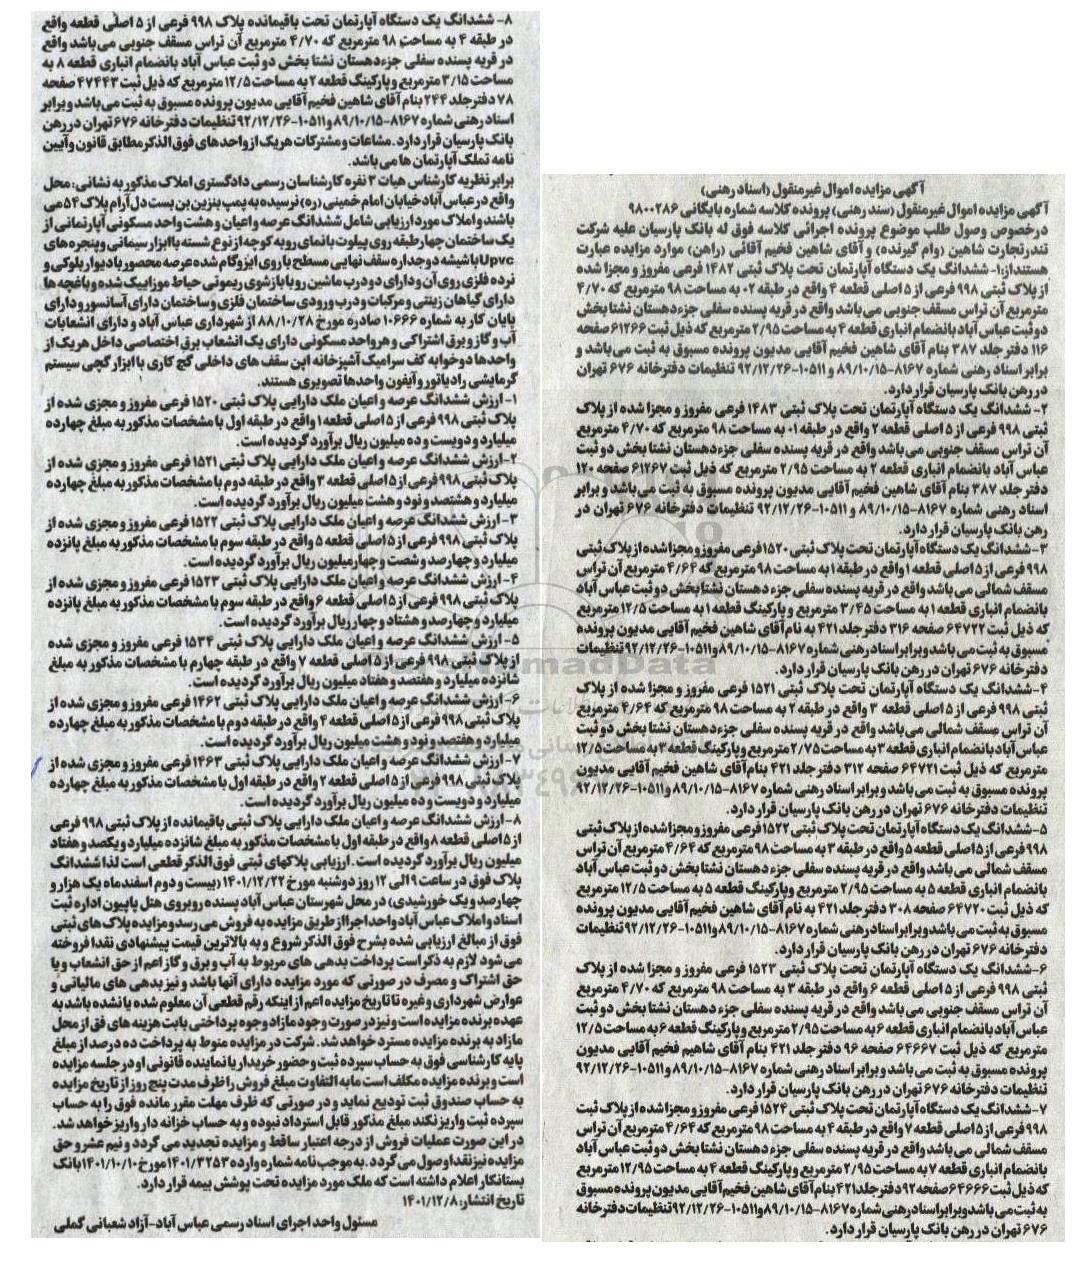 آگهی مزایده اموال غیرمنقول (اسناد رهنی)
آگهی مزایده اموال غیرمنقول (سند رهنی) پرونده کلاسه شماره بایگانی ۹۸۰۰۲۸۶
درخصوص وصول طلب موضوع پرونده اجرائی کلاسه فوق له بانک پارسیان علیه شرکت
تندرتجارت شاهین (وام گیرنده) و آقای شاهین فخیم آقائی (راهن) موارد مزایده عبارت
هستنداز:۱- ششدانگ یک دستگاه آپارتمان تحت پلاک ثبتی ۱۴۸۲ فرعی مفروز و مجزا شده
از پلاک ثبتی ۹۹۸ فرعی از ۵ اصلی قطعه ۴ واقع در طبقه ۰۲ به مساحت ۹۸ مترمربع که ۴/۷۰
مترمربع آن تراس مسقف جنوبی می باشد واقع در قریه پسنده سفلی جزءدهستان نشتا بخش
دو ثبت عباس آباد بانضمام انباری قطعه ۴ به مساحت ۲/۹۵ مترمربع که ذیل ثبت ۶۱۲۶۶ صفحه
۱۱۶ دفتر جلد ۳۸۷ بنام آقای شاهین فخیم آقایی مدیون پرونده مسبوق به ثبت می باشد و
برابر اسناد رهنی شماره ۸۱۶۷-۸۹/۱۰/۱۵ و ۱۰۵۱۱-۹۲/۱۲/۲۶ تنظیمات دفترخانه ۶۷۶ تهران
در رهن بانک پارسیان قرار دارد.
۲- ششدانگ یک دستگاه آپارتمان تحت پلاک ثبتی ۱۴۸۳ فرعی مفروز و مجزا شده از پلاک
ثبتی ۹۹۸ فرعی از ۵ اصلی قطعه ۲ واقع در طبقه ۰۱ به مساحت ۹۸ مترمربع که ۴/۷۰ مترمربع
آن تراس مسقف جنوبی می باشد واقع در قریه پسنده سفلی جزء دهستان نشتا بخش دو ثبت
عباس آباد بانضمام انباری قطعه ۲ به مساحت ۲/۹۵ مترمربع که ذیل ثبت ۶۱۲۶۷ صفحه ۱۲۰
دفتر جلد ۳۸۷ بنام آقای شاهین فخیم آقایی مدیون پرونده مسبوق به ثبت می باشد و برابر
اسناد رهنی شماره ۸۱۶۷-۸۹/۱۰/۱۵ و ۱۰۵۱۱-۹۲/۱۲/۲۶ تنظیمات دفترخانه ۶۷۶ تهران در
رهن بانک پارسیان قرار دارد.
۳-ششدانگ یک دستگاه آپارتمان تحت پلاک ثبتی ۱۵۲۰ فرعی مفروز و مجزا شده از پلاک ثبتی
۹۹۸ فرعی از ۵ اصلی قطعه ۱ واقع در طبقه ۱ به مساحت ۹۸ مترمربع که ۴/۶۴ مترمربع آن تراس
مسقف شمالی می باشد واقع در قریه پسنده سفلی جزء دهستان نشتا بخش دو ثبت عباس آباد
بانضمام انباری قطعه ۱ به مساحت ۳/۴۵ مترمربع و پارکینگ قطعه ۱ به مساحت ۱۲/۵ مترمربع
که ذیل ثبت ۶۴۷۲۲ صفحه ۳۱۶ دفتر جلد ۴۲۱ به نام آقای شاهین فخیم آقایی مدیون پرونده
مسبوق به ثبت می باشد و برابر اسناد رهنی شماره ۸۱۶۷-۸۹/۱۰/۱۵ و ۱۰۵۱۱-۹۲/۱۲/۲۶ تنظیمات
دفترخانه ۶۷۶ تهران در رهن بانک پارسیان قرار دارد.
۴-ششدانگ یک دستگاه آپارتمان تحت پلاک ثبتی ۱۵۲۱ فرعی مفروز و مجزا شده از پلاک
ثبتی ۹۹۸ فرعی از ۵ اصلی قطعه ۳ واقع در طبقه ۲ به مساحت ۹۸ مترمربع که ۴/۶۴ مترمربع
آن تراس مسقف شمالی می باشد واقع در قریه پسنده سفلی جزء دهستان نشتا بخش دو ثبت
عباس آباد بانضمام انباری قطعه ۳ به مساحت ۲/۷۵ مترمربع و پارکینگ قطعه ۳ به مساحت ۱۲/۵
مترمربع که ذیل ثبت ۶۴۷۲۱ صفحه ۳۱۲ دفتر جلد ۴۲۱ بنام آقای شاهین فخیم آقایی مدیون
پرونده مسبوق به ثبت می باشد و برابر اسناد رهنی شماره ۸۱۶۷-۸۹/۱۰/۱۵ و ۱۰۵۱۱-۹۲/۱۲/۲۶
تنظیمات دفترخانه ۶۷۶ تهران در رهن بانک پارسیان قرار دارد.
۵-ششدانگ یک دستگاه آپارتمان تحت پلاک ثبتی ۱۵۲۲ فرعی مفروز و مجزا شده از پلاک ثبتی
۹۹۸ فرعی از ۵ اصلی قطعه ۵ واقع در طبقه ۳ به مساحت ۹۸ مترمربع که ۴/۶۴ مترمربع آن تراس
مسقف شمالی می باشد واقع در قریه پسنده سفلی جزء دهستان نشتا بخش دو ثبت عباس آباد
بانضمام انباری قطعه ۵ به مساحت ۲/۹۵ مترمربع و پارکینگ قطعه ۵ به مساحت ۱۲/۵ مترمربع
که ذیل ثبت ۶۴۷۲۰ صفحه ۳۰۸ دفتر جلد ۴۲۱ به نام آقای شاهین فخیم آقایی مدیون پرونده
مسبوق به ثبت می باشد و برابر اسناد رهنی شماره ۸۱۶۷-۸۹/۱۰/۱۵ و ۱۰۵۱۱-۹۲/۱۲/۲۶ تنظیمات
دفترخانه ۶۷۶ تهران در رهن بانک پارسیان قرار دارد.
۶-ششدانگ یک دستگاه آپارتمان تحت پلاک ثبتی ۱۵۲۳ فرعی مفروز و مجزا شده از پلاک
ثبتی ۹۹۸ فرعی از ۵ اصلی قطعه ۶ واقع در طبقه ۳ به مساحت ۹۸ مترمربع که ۴/۷۰ مترمربع
آن تراس مسقف جنوبی می باشد واقع در قریه پسنده سفلی جزء دهستان نشتا بخش دو ثبت
عباس آباد بانضمام انباری قطعه ۶ به مساحت ۲/۹۵ مترمربع و پارکینگ قطعه ۶ به مساحت ۱۲/۵
مترمربع که ذیل ثبت ۶۴۶۶۷ صفحه ۹۶ دفتر جلد ۴۲۱ بنام آقای شاهیم فخیم آقایی مدیون
پرونده مسبوق به ثبت می باشد و برابر اسناد رهنی شماره ۸۱۶۷-۸۹/۱۰/۱۵ و ۱۰۵۱۱-۹۲/۱۲/۲۶
تنظیمات دفترخانه ۶۷۶ تهران در رهن بانک پارسیان قرار دارد.
۷-ششدانگ یک دستگاه آپارتمان تحت پلاک ثبتی ۱۵۲۴ فرعی مفروز و مجزا شده از پلاک ثبت
۹۹۸ فرعی از ۵ اصلی قطعه ۷ واقع در طبقه ۴ به مساحت ۹۸ مترمربع که ۴/۶۴ مترمربع آن تراس
مسقف شمالی می باشد واقع در قریه پسنده سفلی جزء دهستان نشتا بخش دو ثبت عباس آباد
بانضمام انباری قطعه ۷ به مساحت ۲/۹۵ مترمربع و پارکینگ قطعه ۴ به مساحت ۱۲/۹۵ مترمربع
که ذیل ثبت ۶۴۶۶۶ صفحه ۹۲ دفتر جلد ۴۲۱ بنام آقای شاهین فخیم آقایی مدیون پرونده مسبوق
به ثبت می باشد و برابر اسناد رهنی شماره ۸۱۶۷-۸۹/۱۰/۱۵ و ۱۰۵۱۱-۹۲/۱۲/۲۶ تنظیمات دفترخانه
۶۷۶ تهران در رهن بانک پارسیان قرار دارد.
۸- ششدانگ یک دستگاه آپارتمان تحت باقیمانده پلاک ۹۹۸ فرعی از ۵ اصلی قطعه واقع
در طبقه ۴ به مساحت ۹۸ مترمربع که ۴/۷۰ مترمربع آن تراس مسقف جنوبی می باشد واقع
در قریه پسنده سفلی جزءدهستان نشتا بخش دو ثبت عباس آباد بانضمام انباری قطعه ۸ به
مساحت ۳/۱۵ مترمربع و پارکینگ قطعه ۲ به مساحت ۱۲/۵ مترمربع که ذیل ثبت ۴۷۴۴۳ صفحه
۷۸ دفتر جلد ۲۴۴ بنام آقای شاهین فخیم آقایی مدیون پرونده مسبوق به ثبت می باشد و برابر
اسناد رهنی شماره ۸۱۶۷-۸۹/۱۰/۱۵ و ۱۰۵۱۱-۹۲/۱۲/۲۶ تنظیمات دفترخانه ۶۷۶ تهران در رهن
بانک پارسیان قرار دارد. مشاعات و مشترکات هریک از واحدهای فوق الذکر مطابق قانون و آیین
نامه تملک آپارتمان ها می باشد.
برابر نظریه کارشناس هیات ۳ نفره کارشناسان رسمی دادگستری املاک مذکور به نشانی: محل
واقع در عباس آباد خیابان امام خمینی (ره) نرسیده به پمپ بنزین بن بست دل آرام پلاک ۵۴ می
باشند و املاک مورد ارزیابی شامل ششدانگ عرصه و اعیان و هشت واحد مسکونی آپارتمانی از
یک ساختمان چهارطبقه روی پیلوت با نمای رو به کوچه از نوع شسته با ابزار سیمانی و پنجره های
Upvc با شیشه دو جداره سقف نهایی مسطح با روی ایزوگام شده عرصه محصور با دیوار بلوکی و
نرده فلزی روی آن و دارای دو درب ماشین رو با بازشوی ریموتی حیاط موزاییک شده و باغچه ها
دارای گیاهان زینتی و مرکبات و درب ورودی ساختمان فلزی و ساختمان دارای آسانسور و دارای
پایان کار به شماره ۱۰۶۶۶ صادره مورخ ۸۸/۱۰/۲۸ از شهرداری عباس آباد و دارای انشعابات
آب و گاز و برق اشتراکی و هر واحد مسکونی دارای یک انشعاب برق اختصاصی داخل هریک از
واحدها دوخوابه کف سرامیک آشپزخانه اپن سقف های داخلی گچ کاری با ابزار گچی سیستم
گرمایشی رادیاتور و آیفون واحدها تصویری هستند.
۱- ارزش ششدانگ عرصه و اعیان ملک دارایی پلاک ثبتی ۱۵۲۰ فرعی مفروز و مجزی شده از
پلاک ثبتی ۹۹۸ فرعی از ۵ اصلی قطعه ۱ واقع در طبقه اول با مشخصات مذکور به مبلغ چهارده
میلیارد و دویست و ده میلیون ریال برآورد گردیده است.
۲- ارزش ششدانگ عرصه و اعیان ملک دارایی پلاک ثبتی ۱۵۲۱ فرعی مفروز و مجزی شده از
پلاک ثبتی ۹۹۸ فرعی از ۵ اصلی قطعه ۳ واقع در طبقه دوم با مشخصات مذکور به مبلغ چهارده
میلیارد و هفتصد و نود و هشت میلیون ریال برآورد گردیده است.
۳- ارزش ششدانگ عرصه و اعیان ملک دارایی پلاک ثبتی ۱۵۲۲ فرعی مفروز و مجزی شده از
پلاک ثبتی ۹۹۸ فرعی از ۵ اصلی قطعه ۵ واقع در طبقه سوم با مشخصات مذکور به مبلغ پانزده
میلیارد و چهارصد و شصت و چهارمیلیون ریال برآورد گردیده است.
۴- ارزش ششدانگ عرصه و اعیان ملک دارایی پلاک ثبتی ۱۵۲۳ فرعی مفروز و مجزی شده از
پلاک ثبتی ۹۹۸ فرعی از ۵ اصلی قطعه ۶ واقع در طبقه سوم با مشخصات مذکور به مبلغ پانزده
میلیارد و چهارصد و هشتاد و چهار ریال برآورد گردیده است.
۵- ارزش ششدانگ عرصه و اعیان ملک دارایی پلاک ثبتی ۱۵۳۴ فرعی مفروز و مجزی شده
از پلاک ثبتی ۹۹۸ فرعی از ۵ اصلی قطعه ۷ واقع در طبقه چهارم با مشخصات مذکور به مبلغ
شانزده میلیارد و هفتصد و هفتاد میلیون ریال برآورد گردیده است.
۶- ارزش ششدانگ عرصه و اعیان ملک دارایی پلاک ثبتی ۱۴۶۲ فرعی مفروز و مجزی شده از
پلاک ثبتی ۹۹۸ فرعی از ۵ اصلی قطعه ۴ واقع در طبقه دوم با مشخصات مذکور به مبلغ چهارده
میلیارد و هفتصد و نود و هشت میلیون ریال برآورد گردیده است.
۷- ارزش ششدانگ عرصه و اعیان ملک دارایی پلاک ثبتی ۱۴۶۳ فرعی مفروز و مجزی شده از
پلاک ثبتی ۹۹۸ فرعی از ۵ اصلی قطعه ۲ واقع در طبقه اول با مشخصات مذکور به مبلغ چهارده
میلیارد و دویست و ده میلیون ریال برآورد گردیده است.
۸- ارزش ششدانگ عرصه و اعیان ملک دارایی پلاک ثبتی باقیمانده از پلاک ثبتی ۹۹۸ فرعی
از ۵ اصلی قطعه ۸ واقع در طبقه اول با مشخصات مذکور به مبلغ شانزده میلیارد و یکصد و هفتاد
میلیون ریال برآورد گردیده است. ارزیابی پلاکهای ثبتی فوق الذکر قطعی است لذا ششدانگ
پلاک فوق در ساعت ۹ الی ۱۲ روز دوشنبه مورخ ۱۴۰۱/۱۲/۲۲ (بیست و دوم اسفندماه یک هزار و
چهارصد و یک خورشیدی) در محل شهرستان عباس آباد پسنده روبروی هتل پاپیون اداره ثبت
اسناد و املاک عباس آباد واحد اجرا از طریق مزایده به فروش می رسد و مزایده پلاک های ثبتی
فوق از مبالغ ارزیابی شده بشرح فوق الذکر شروع و به بالاترین قیمت پیشنهادی نقدا فروخته
می شود لازم به ذکر است پرداخت بدهی های مربوط به آب و برق و گاز اعم از حق انشعاب و یا
حق اشتراک و مصرف در صورتی که مورد مزایده دارای آنها باشد و نیز بدهی های مالیاتی و
عوارض شهرداری و غیره تا تاریخ مزایده اعم از اینکه رقم قطعی آن معلوم شده یا نشده باشد به
عهده برنده مزایده است و نیز در صورت وجود مازاد وجوه پرداختی بابت هزینه های فق از محل
مازاد به برنده مزایده مسترد خواهد شد. شرکت در مزایده منوط به پرداخت ده درصد از مبلغ
پایه کارشناسی فوق به حساب سپرده ثبت و حضور خریدار یا نماینده قانونی او در جلسه مزایده
است و برنده مزایده مکلف است مابه التفاوت مبلغ فروش را ظرف مدت پنج روز از تاریخ مزایده
به حساب صندوق ثبت تودیع نماید و در صورتی که ظرف مهلت مقرر مانده فوق را به حساب
سپرده ثبت واریز نکند مبلغ مذکور قابل استرداد نبوده و به حساب خزانه دار واریز خواهد شد.
در این صورت عملیات فروش از درجه اعتبار ساقط و مزایده تجدید می گردد و نیم عشر و حق
مزایده نیز نقدا وصول می گردد. به موجب نامه شماره وارده ۱۴۰۱/۳۲۵۳ مورخ ۱۴۰۱/۱۰/۱۰ بانک
بستانکار اعلام داشته است که ملک مورد مزایده تحت پوشش بیمه قرار دارد.
تاریخ انتشار: ۱۴۰۱/۱۲/۸
مسئول واحد اجرای اسناد رسمی عباس آباد-آزاد شعبانی گملی